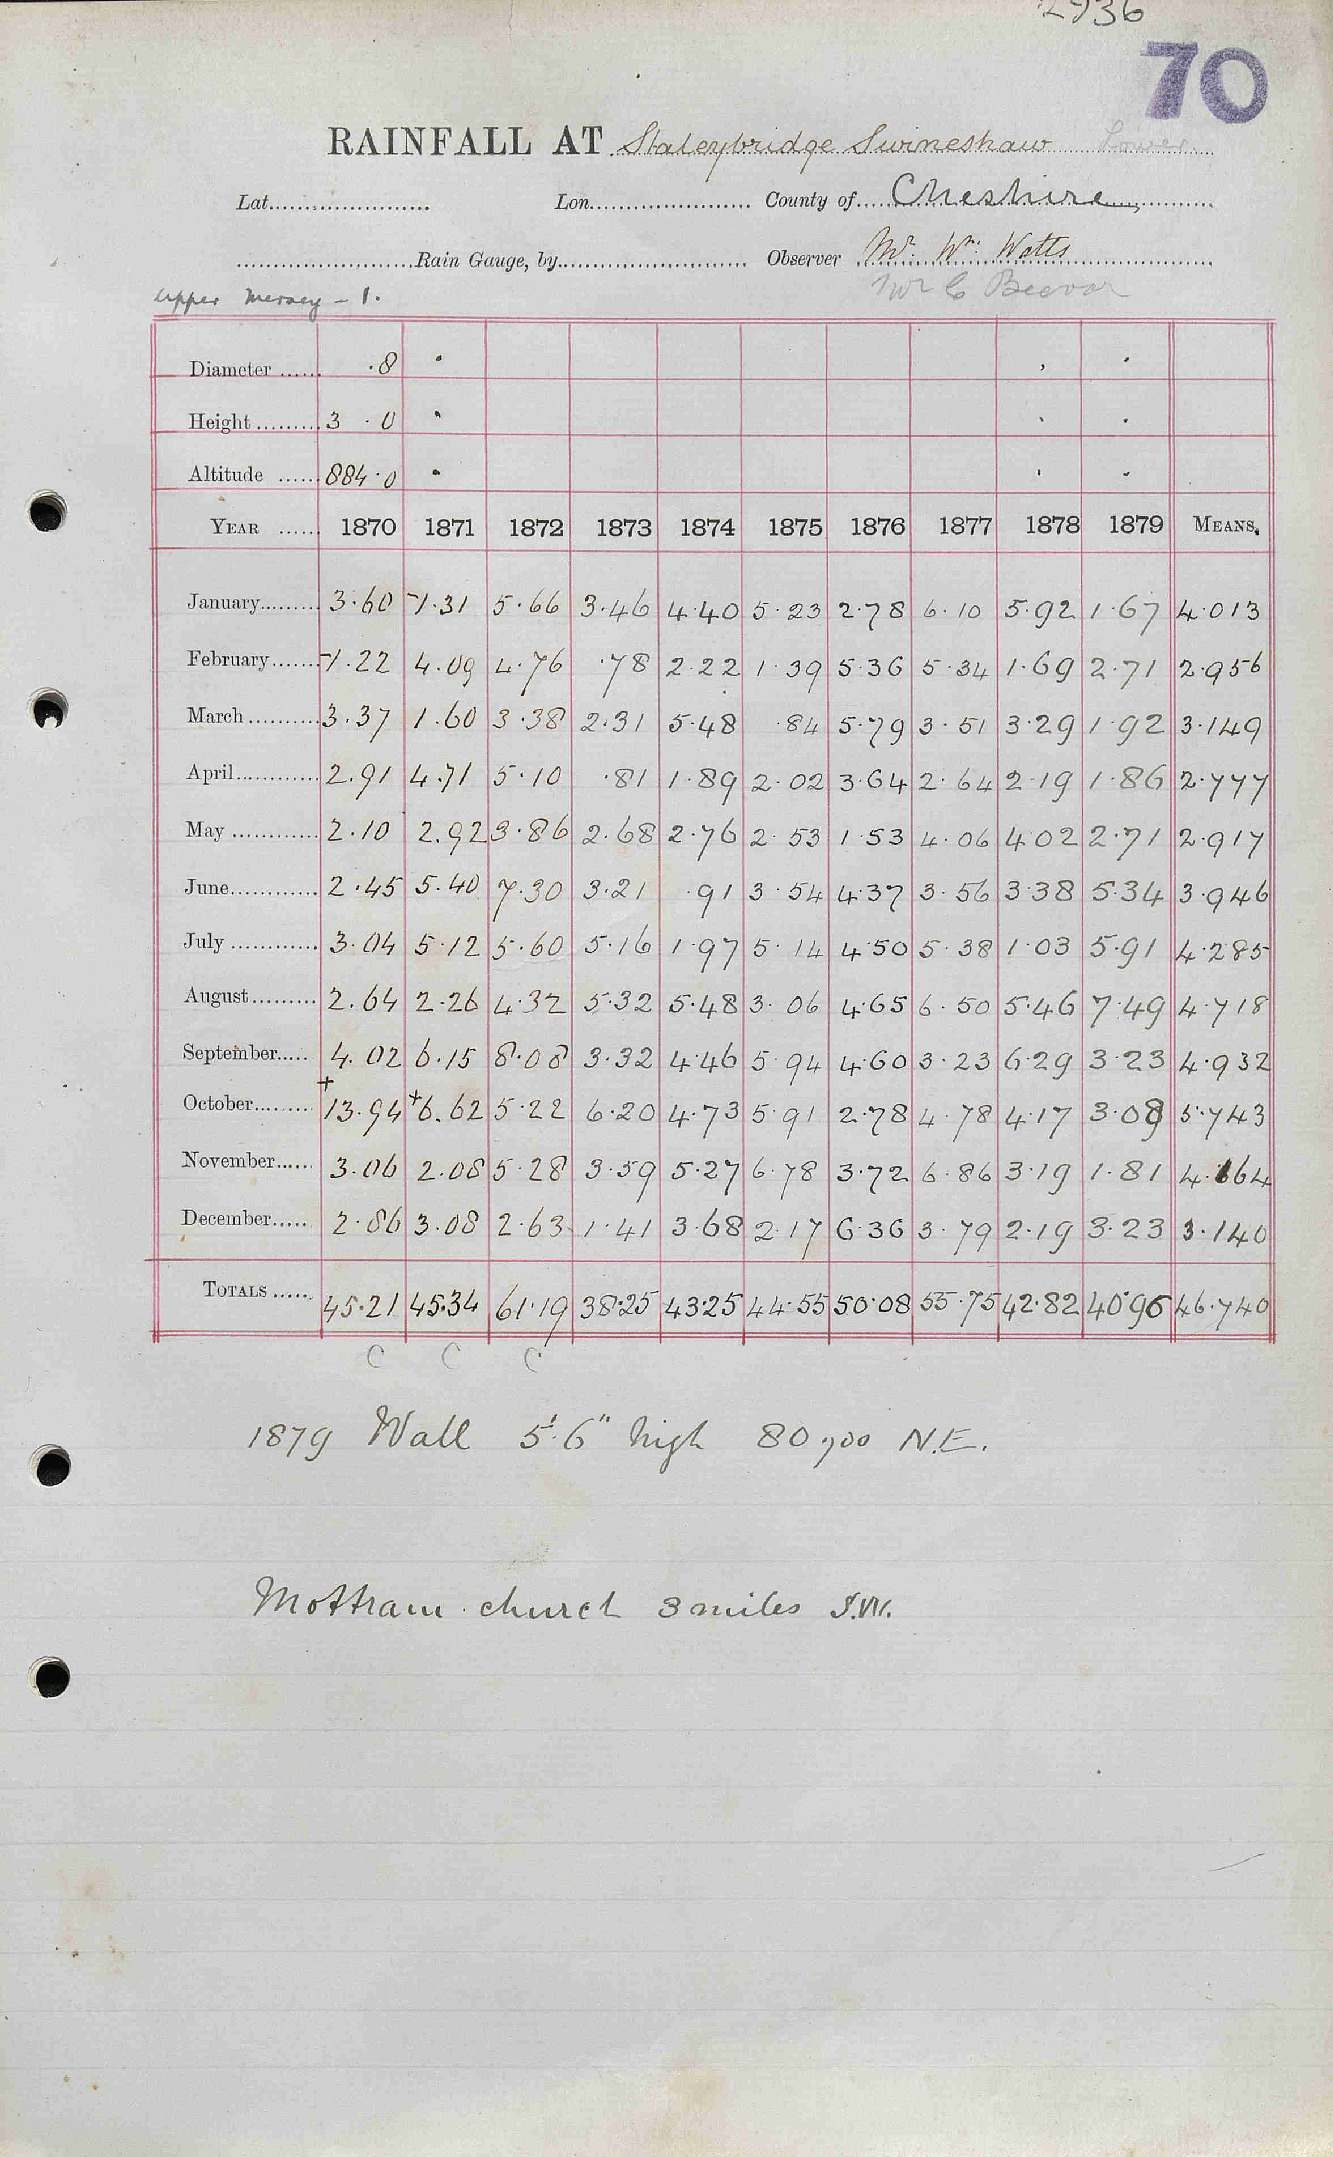 2936
70
RAINFALL AT Staleybridge Swineshaw Lower
Lat. Lon. County of Cheshire
Rain Gauge, by Observer Mr. Wm. Watts
Upper Mersey - 1. Mr C Beevor
Diameter ·8
Height 3 · 0
Altitude 884·0
YEAR 1870 1871 1872 1873 1874 1875 1876 1877 1878 1879 MEANS.
January 3·60 1·31 5·66 3·46 4·40 5·23 2·78 6·10 5·92 1·67 4·013
February 1·22 4·09 4·76 ·78 2·22 1·39 5·36 5·34 1·69 2·71 2·956
March 3·37 1·60 3·38 2·31 5·48 ·84 5·79 3·51 3·29 1·92 3·149
April 2·91 4·71 5·10 ·81 1·89 2·02 3·64 2·64 2·19 1·86 2·777
May 2·10 2·92 3·86 2·68 2·76 2·53 1·53 4·06 4·02 2·71 2·917
June 2·45 5·40 7·30 3·21 ·91 3·54 4·37 3·56 3·38 5·34 3·946
July 3·04 5·12 5·60 5·16 1·97 5·14 4·50 5·38 1·03 5·91 4·285
August 2·64 2·26 4·32 5·32 5·48 3·06 4·65 6·50 5·46 7·49 4·718
September 4·02 6·15 8·08 3·32 4·46 5·94 4·60 3·23 6·29 3·23 4·932
October +13·94 +6·62 5·22 6·20 4·73 5·91 2·78 4·78 4·17 3·08 5·743
November 3·06 2·08 5·28 3·59 5·27 6·78 3·72 6·86 3·19 1·81 4·164
December 2·86 3·08 2·63 1·41 3·68 2·17 6·36 3·79 2·19 3·23 3·140
TOTALS 45·21 45·34 61·19 38·25 43·25 44·55 50·08 55·75 42·82 40·96 46·740
C C C
1879 Wall 5'·6" high 80 yds N.E.
Mottram church 3 miles S.W.